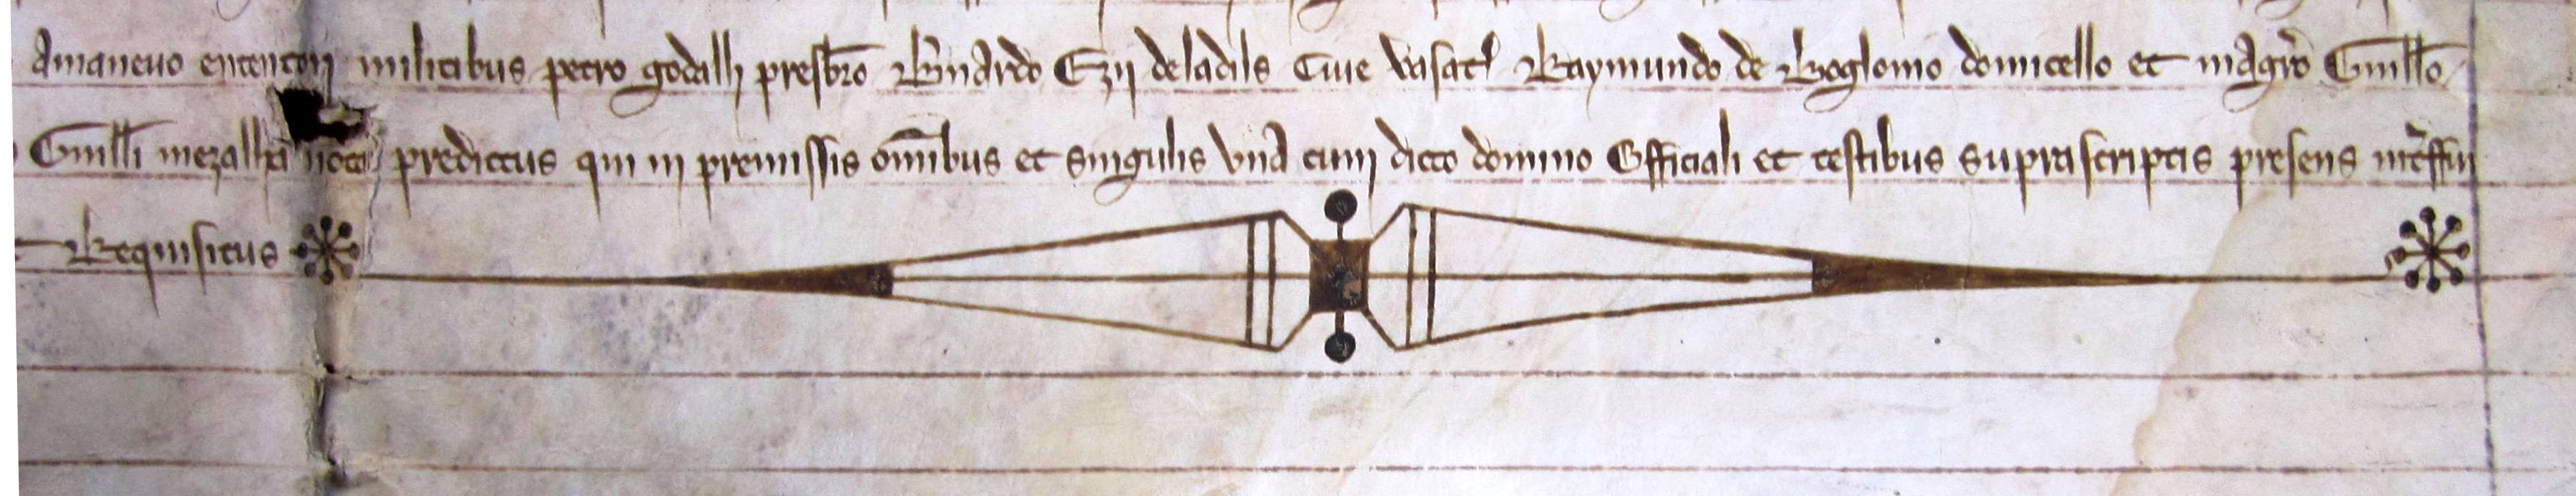 Amaneuo ertentori militibus petro godalh presbro Bernardo Ezii deladils Ciue vasat Raymundo de Boglomo domicello et magro Guillo
Guilli mezalha nota predictus qui in premissis omibus et singulis vna cum dicto domino Officiali et testibus suprascriptis presens interffui
Requisitus